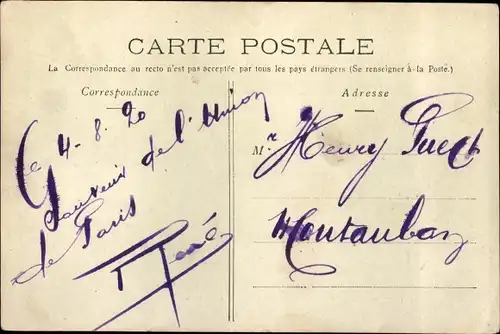 CARTE POSTALE
La Correspondance au recto n'est pas acceptée par tous les pays étrangers (Se renseigner à la Poste.)
Correspondance
Adresse
Le 4-8-20
Souvenir de l'Union
de Paris
René
Mr Henry
Montauban